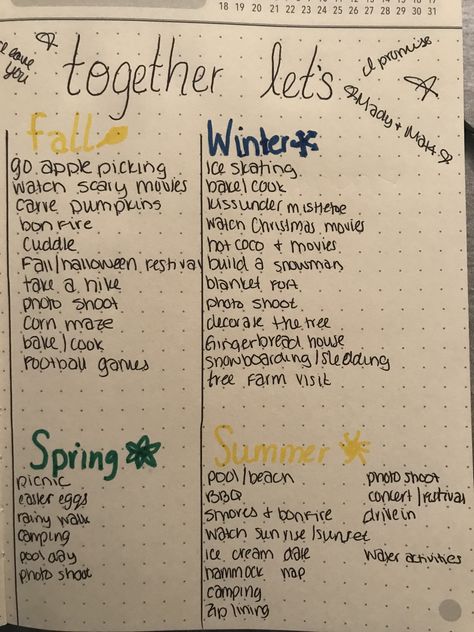 18 19 20 21 22 23 24 25 26 27 28 29 30 31
I love you
together let's
I promise
Mady + Matt
Fall
go apple picking
watch scary movies
carve pumpkins
bonfire
cuddle
Fall/halloween festival
take a hike
photo shoot
corn maze
bake/cook
Football games
Winter
ice skating
bake/cook
kiss under mistletoe
watch Christmas movies
hot coco + movies
build a snowman
blanket fort
photo shoot
decorate the tree
Gingerbread house
snowboarding/sledding
tree farm visit
Spring
picnic
easter eggs
rainy walk
camping
pool day
photo shoot
Summer
pool/beach
BBQ
smores + bonfire
watch sunrise/sunset
ice cream date
hammock nap
camping
zip lining
photo shoot
concert/festival
drive in
water activities